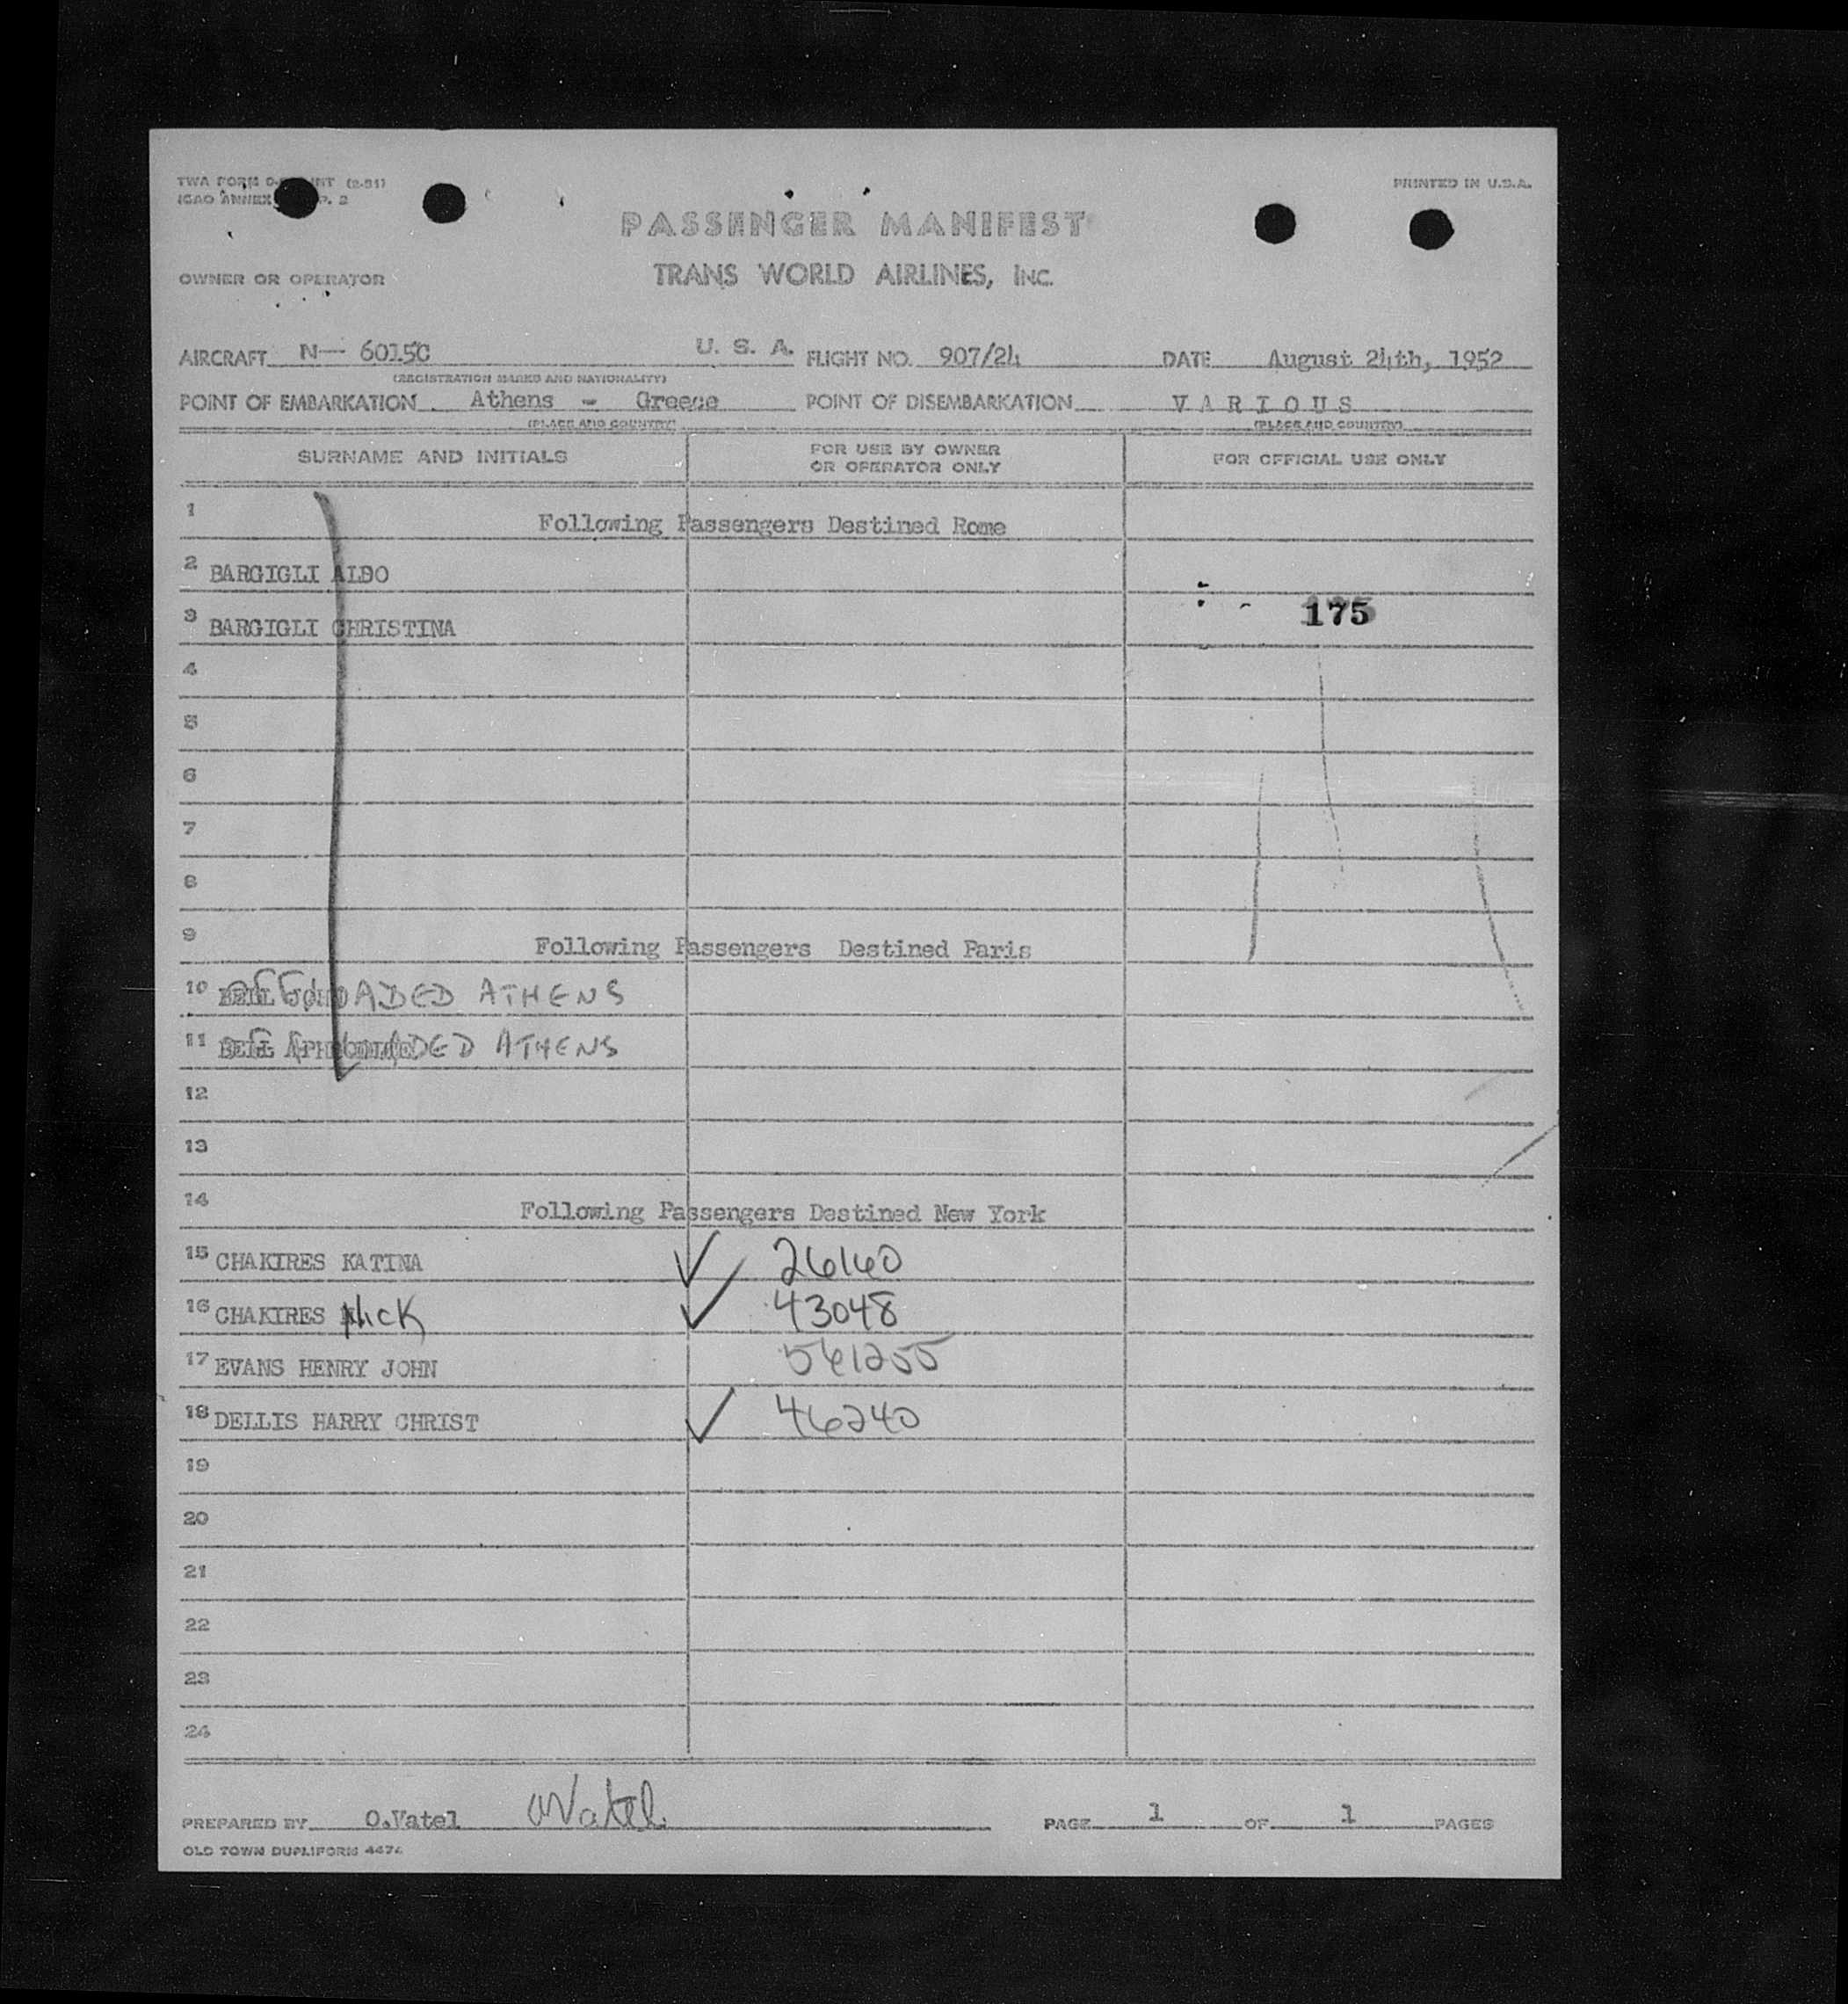 TWA FORM INT (2-51)
PRINTED IN U.S.A.
ICAO ANNEX P. 2
PASSENGER MANIFEST
OWNER OR OPERATOR
TRANS WORLD AIRLINES, INC.
AIRCRAFT N— 6015C U. S. A. FLIGHT NO. 907/24 DATE August 24th, 1952
(REGISTRATION MARKS AND NATIONALITY)
POINT OF EMBARKATION Athens - Greece POINT OF DISEMBARKATION VARIOUS
(PLACE AND COUNTRY) (PLACE AND COUNTRY)
SURNAME AND INITIALS FOR USE BY OWNER OR OPERATOR ONLY FOR OFFICIAL USE ONLY
1 Following Passengers Destined Rome
2 BARGIGLI ALDO
3 BARGIGLI CHRISTINA 175
4
5
6
7
8
9 Following Passengers Destined Paris
10 BELL OFFLOADED ATHENS
11 BELL OFFLOADED ATHENS
12
13
14 Following Passengers Destined New York
15 CHAKIRES KATINA ✓ 26160
16 CHAKIRES Nick ✓ 43048
17 EVANS HENRY JOHN 561255
18 DELLIS HARRY CHRIST ✓ 46240
19
20
21
22
23
24
PREPARED BY O.Vatel OVatel PAGE 1 OF 1 PAGES
OLD TOWN DUPLIFORM 4474